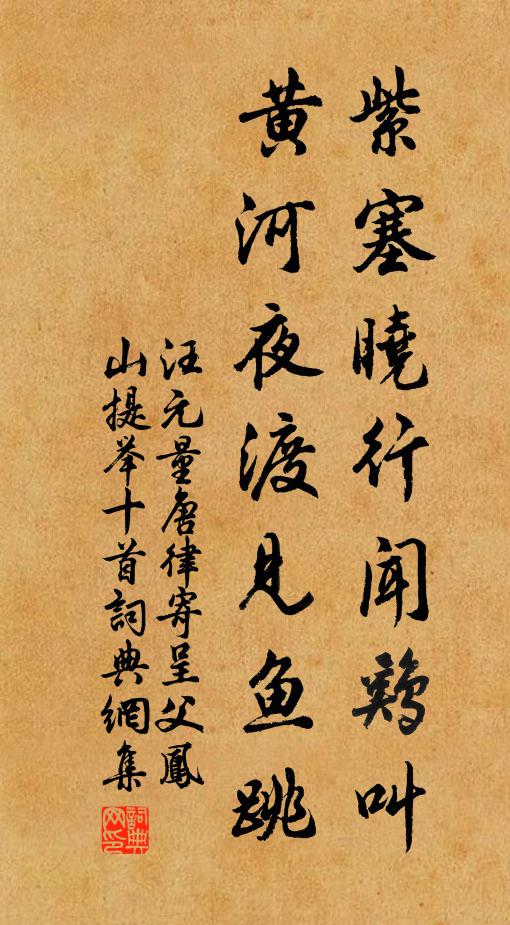 紫塞曉行聞鷄叫
黄河夜渡見鱼跳
汪元量唐律寄呈父鳳
山提举十首詞典網集
詞典
网印